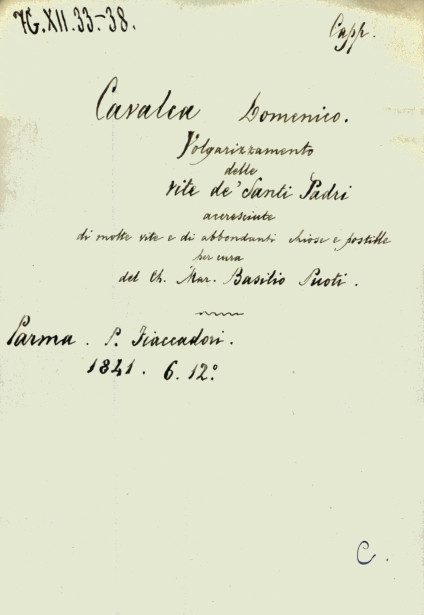 7G.XII.33-38.
Capp.
Cavalca Domenico.
Volgarizzamento
delle
Vite de' Santi Padri
accresciute
di molte vite e di abbondanti chiose e postille
per cura
del Ch. Mar. Basilio Puoti.
Parma. P. Fiaccadori.
1841. 6. 12°
C.